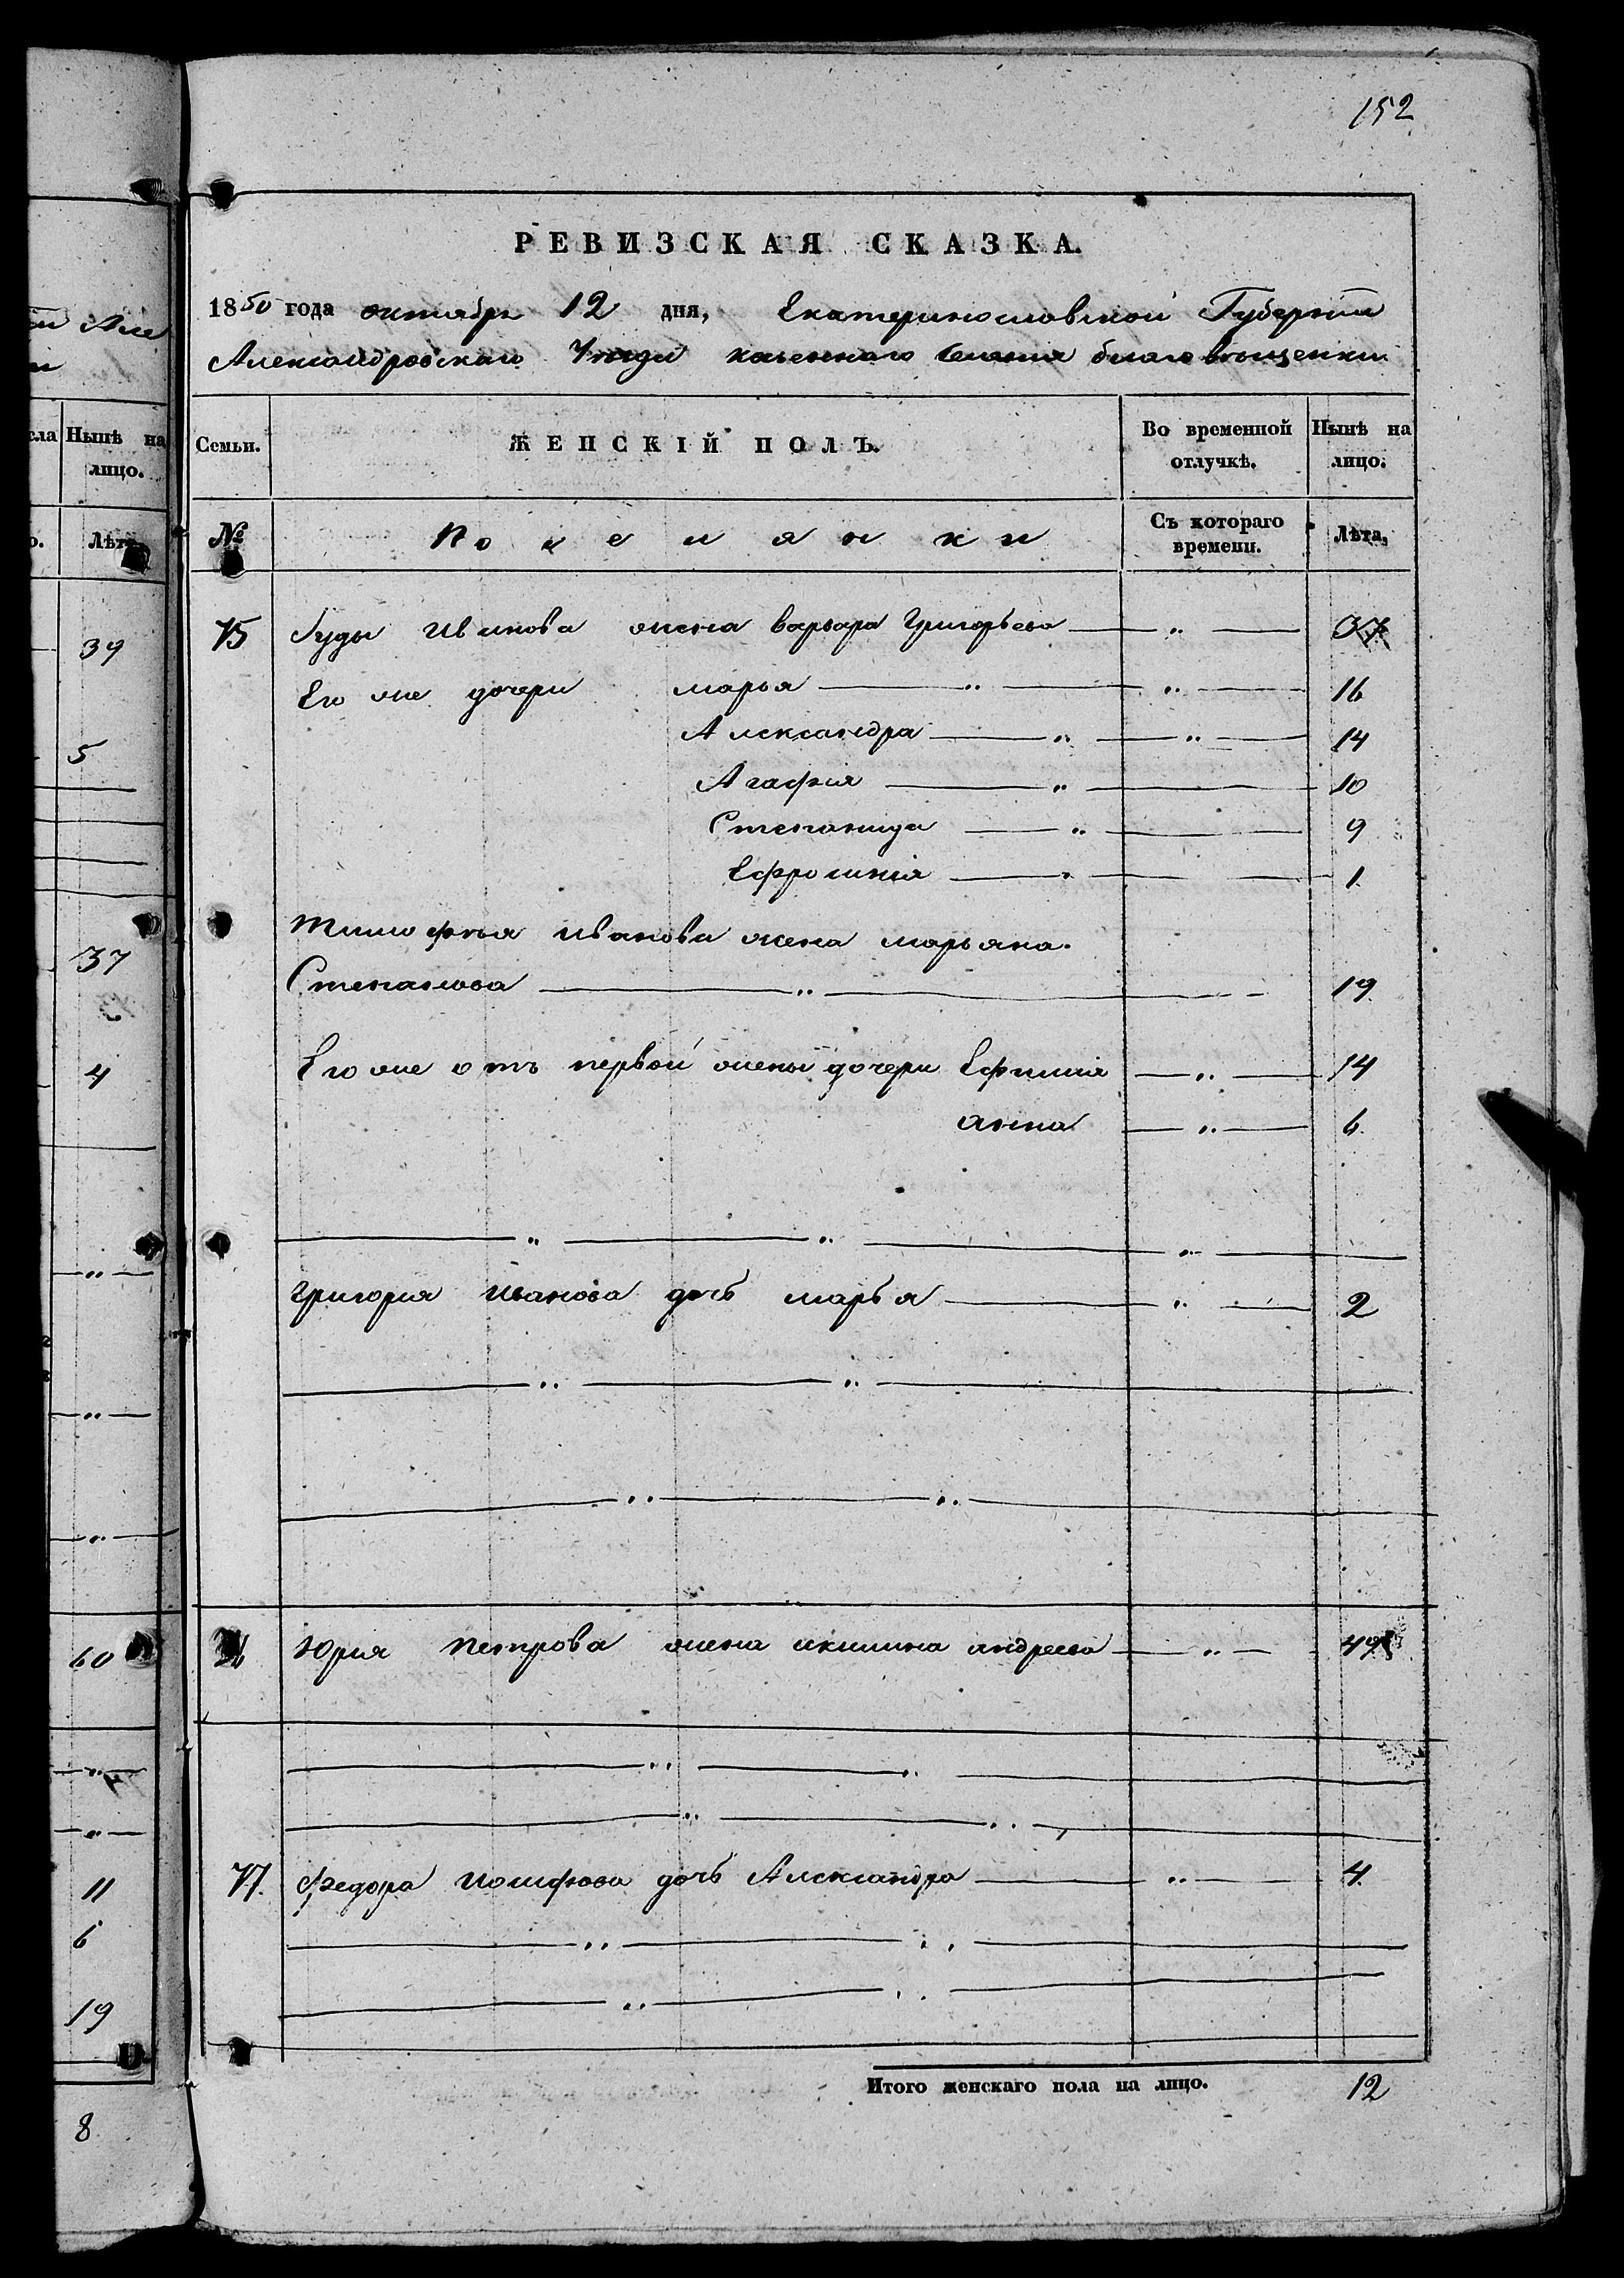 152
РЕВИЗСКАЯ СКАЗКА.
1850 года октября 12 дня, Екатеринославской Губерніи
Александровскаго Уѣзда казеннаго селенія благовѣщенки
Семьи. ЖЕНСКІЙ ПОЛЪ. Во временной отлучкѣ. Нынѣ на лицо.
№ Поселянки Съ котораго времени. Лѣта,
75 Гуды Иванова жена варвара Григорьева — „ — 37
Его же дочери марья — „ — „ — 16
Александра — „ — „ — 14
Агафія — „ — 10
Степанида — „ — 9
Ефросинія — „ — 1
тимофѣя иванова жена марьяна
Степанова — „ — 19
Его же отъ первой жены дочери Ефимія — „ — 14
анна — „ — 6
— „ — „ — „ —
григорія иванова дочь марья — „ — 2
— „ — „ —
— „ — „ —
76 Юрія петрова жена акилина андреева — „ — 49
— „ — „ —
— „ — „ —
77. федора иосифова дочь Александра — „ — 4
— „ — „ —
— „ — „ —
Итого женскаго пола на лицо. 12
Нынѣ на
лицо.
Лѣта
39
5
37
4
— „ —
— „ —
— „ —
60
— „ —
— „ —
11
6
19
8